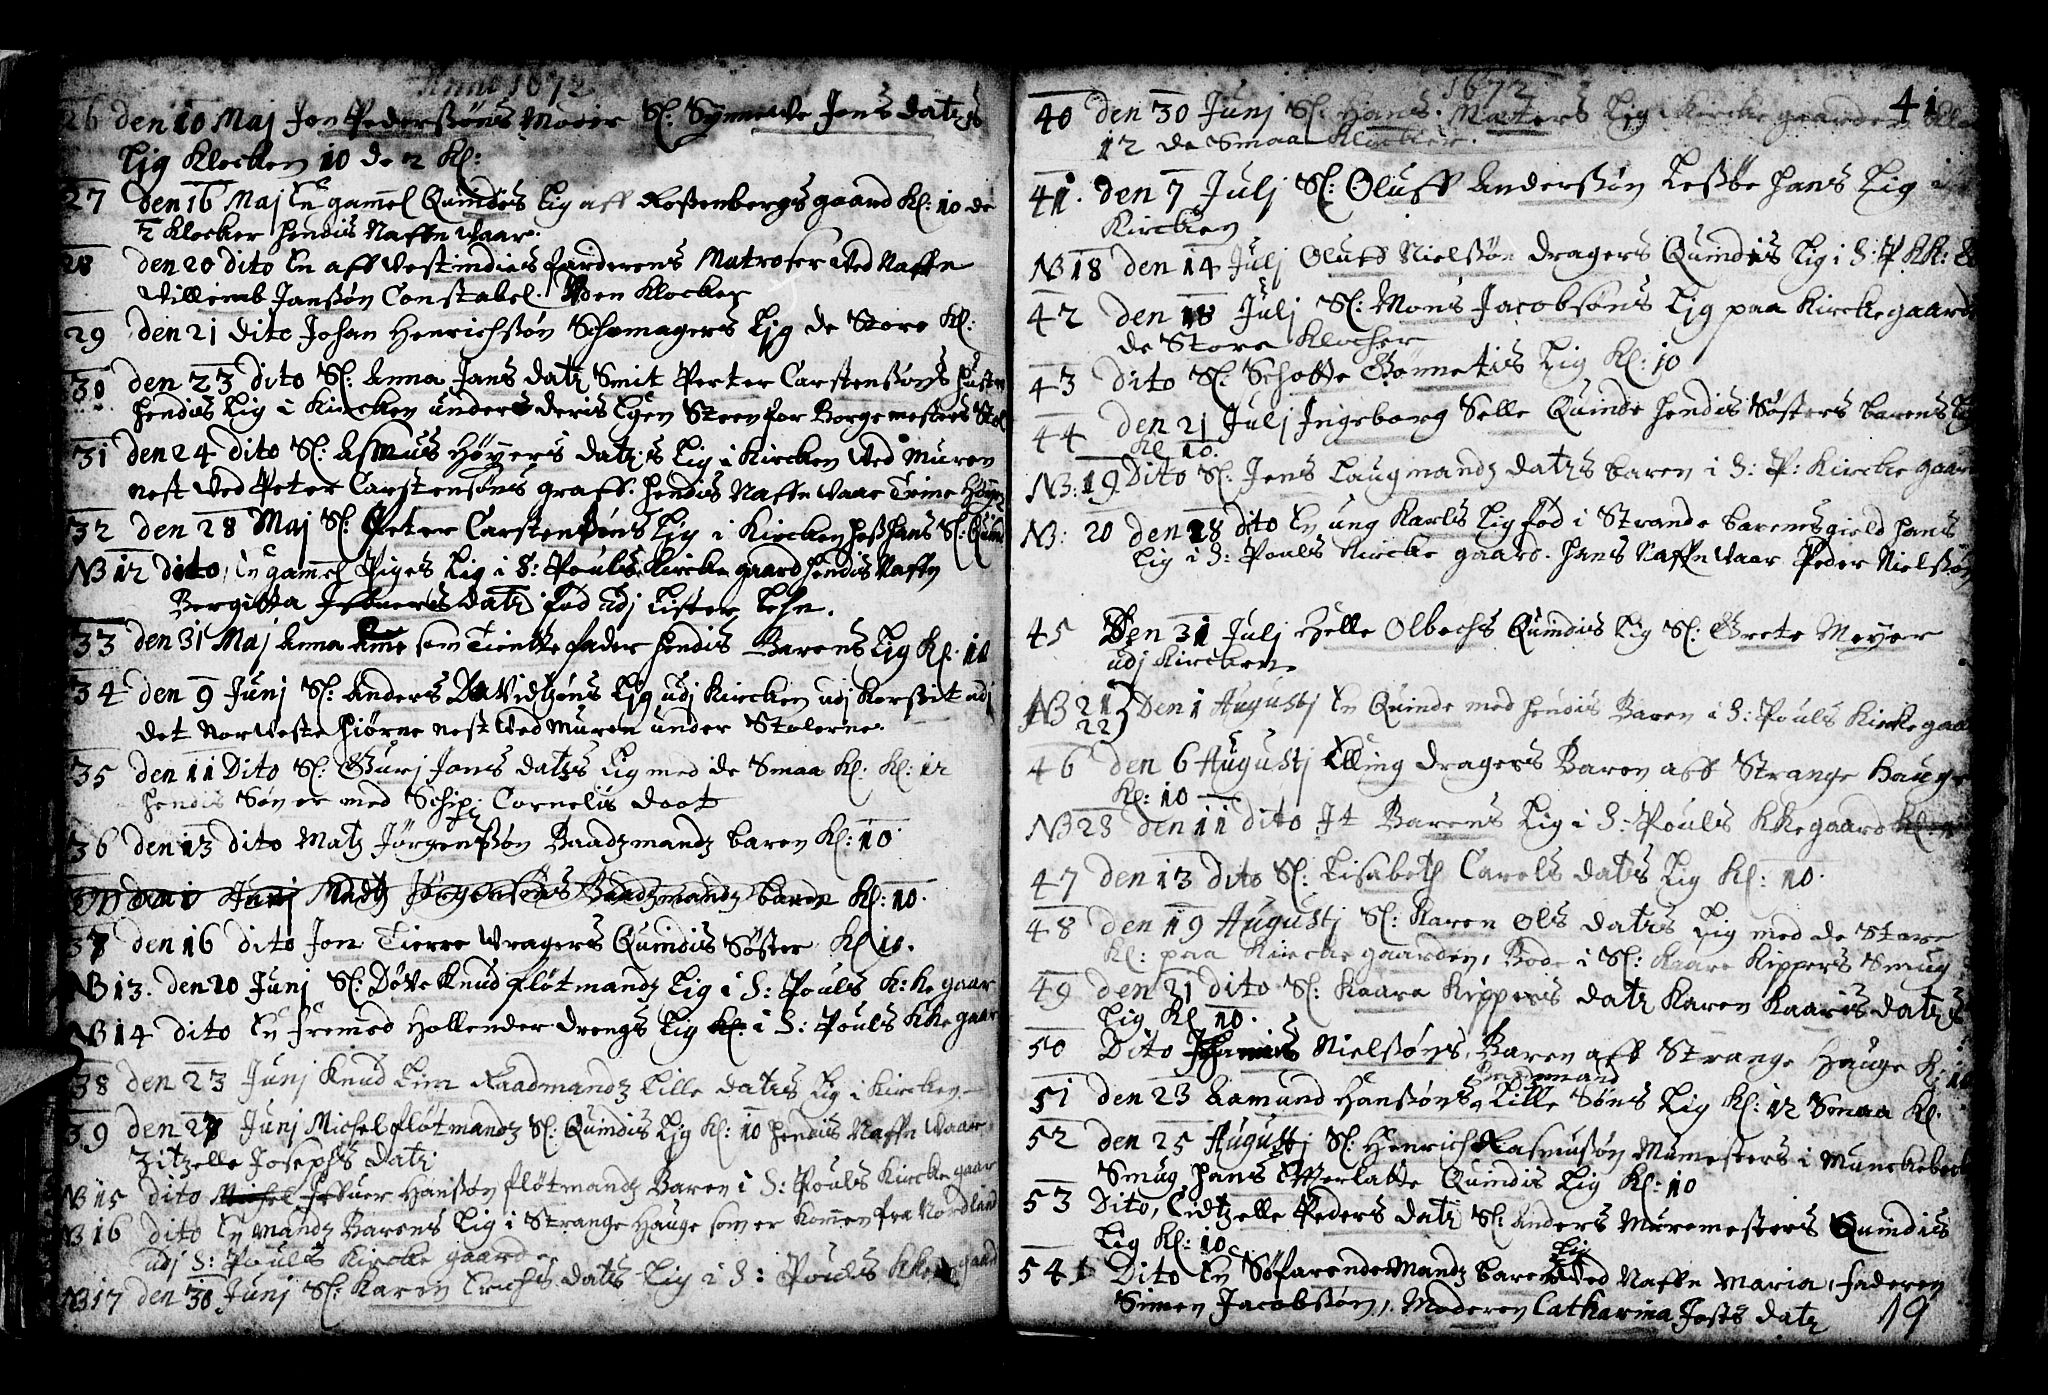 Anno 1672
26 den 10 Maj Jon Pederssøns Moder Sl: Synnewe Jons datzs
Lig Klocken 10 de 2 Kl:
27 den 16 Maj En gamel Quindes Lig aff Rossenbergs gaard Kl: 10 de
2 Klocker hendis Naffn waar.
28 den 20 dito En aff Vestindies farderens Matroser Ved Naffn
Villemb Janssøn Constabel. Uden Klocker
29 den 21 dito Johan Henrichssøn Schomagers Lig de Store Kl:
30 den 23 dito Sl: Anna Jans datz Smit Petter Carstenssøns
hendis Lig i Kircken under deris Egen Steen for Borgemesters Stol
31 den 24 dito Sl: Asmus Høyers datzs Lig i Kircken Ved Muren
nest Ved Peter Carstensøns graff. hendis Naffn waar Trine
32 den 28 Maj Sl: Peter Carstensøns Lig i Kircken hoss hans Sl:
NB 12 dito, En gamel Piges Lig i S: Pouls Kircke gaard hendis Naffn
Bergitta datz fød udj Lister Lehn.
33 den 31 Maj Anna som Tiente fader hendis Barens Lig Kl. 10
34 den 9 Junj Sl: Anders Davidtzøns Lig udj Kircken udj Korssit udj
det Norveste hiørne nest Ved Muren under Stolerne.
35 den 11 Dito Sl: Gurj Jons datzs Lig med de Smaa Kl: Kl: 12
hendis Søn er med Schip: Cornelis doot
36 den 13 dito Matz Jørgenssøn Baadzmandz baren Kl: 10
Junj Madtz Jørgensøns Baadzmandz baren Kl: 10.
37 den 16 dito Jon Tierre Dragers Quindis Søster Kl 10.
NB 13. den 20 Junj Sl: Døve Knud fløtmandz Lig i S: Pouls K:ke gaar
NB 14 dito En fremed Hollender drengs Lig i S: Pouls Kke gaar
38 den 23 Junj Knud Lim Raadmandz Lille datzs Lig i Kircken
39 den 27 Junj Michel fløtmandz Sl: Quindis Lig Kl: 10 hendis Naffn waar
Zitzelle Josephs datz
NB 15 dito Michel Hanssøn fløtmandz Baren i S: Pouls Kircke gaar
NB 16 dito En Mandz Barens Lig i Strange Hauge som er Komen fra Nordland
udj S: Pouls Kircke gaard
NB 17 den 30 Junj Sl: Karen Erichs datzs Lig i S: Pouls Kke gaard
1672 41
40 den 30 Junj Sl: Hans Lig Kircke gaarden
12 de Smaa Klocker.
41. den 7 Julj Sl: Oluff Anderssøn Lessbe hans Lig i
Kircken
NB 18 den 14 Julj Oluff Nielssøn dragers Quindis Lig i S: P KK:
42 den 18 Julj Sl: Mons Jacobsøns Lig paa Kircke gaard
de Store Klocker
43 Dito Sl: Schotte Lig Kl: 10
44 den 21 Julj Ingeborg Selle Quinde hendis Søsters barens Lig
Kl 10.
NB: 19. Dito Sl: Jens Laugmandz datzs baren i S: P: Kircke gaar
NB: 20 den 28 dito En ung Karls Lig fød i Strande barens gield hans
Lig i S: Pouls Kircke gaard. Hans Naffn waar Peder Nielssøn
45 Den 31 Julj Helle Olbechs Quindis Lig Sl: Grete Meyer
udj Kircken
NB 21 22 Den 1 Augustj En Quinde med hendis Baren i S: Pouls Kircke gaar
46 den 6 Augustj Elling dragers Baren aff Strange Hauge
Kl: 10
NB 23 den 11 dito It Barens Lig i S: Pouls KKe gaard
47 den 13 dito Sl: Lisabeth Carels datzs Lig Kl: 10.
48 den 19 Augustj Sl: Karen Ols datzs Lig med de Store
Kl: paa Kircke gaarden, Bode i Sl: Kaare Kippers Smug
49 den 21 dito Sl: Kaare Kippers datz Karen Kaaris datzs
Lig Kl 10.
50 Dito Nielssøns Baren aff Strange Hauge Kl: 10
51 den 23 Aamund Hanssøns Lille Søns Lig Kl: 12 Smaa Kl.
52 den 25 Augustj Sl: Henrich Rasmusøn Mumesters i Munckebeck
Smug hans Effterlatte Quindis Lig Kl: 10
53 Dito, Cidtzelle Peders datz Sl: Anders Muremesters Quindis
Lig Kl: 10.
54 Dito En Søfarende Mandz barens Lig Ved Naffn Maria, faderen
Simen Jacobssøn, Moderen Catharina Josts datz
19